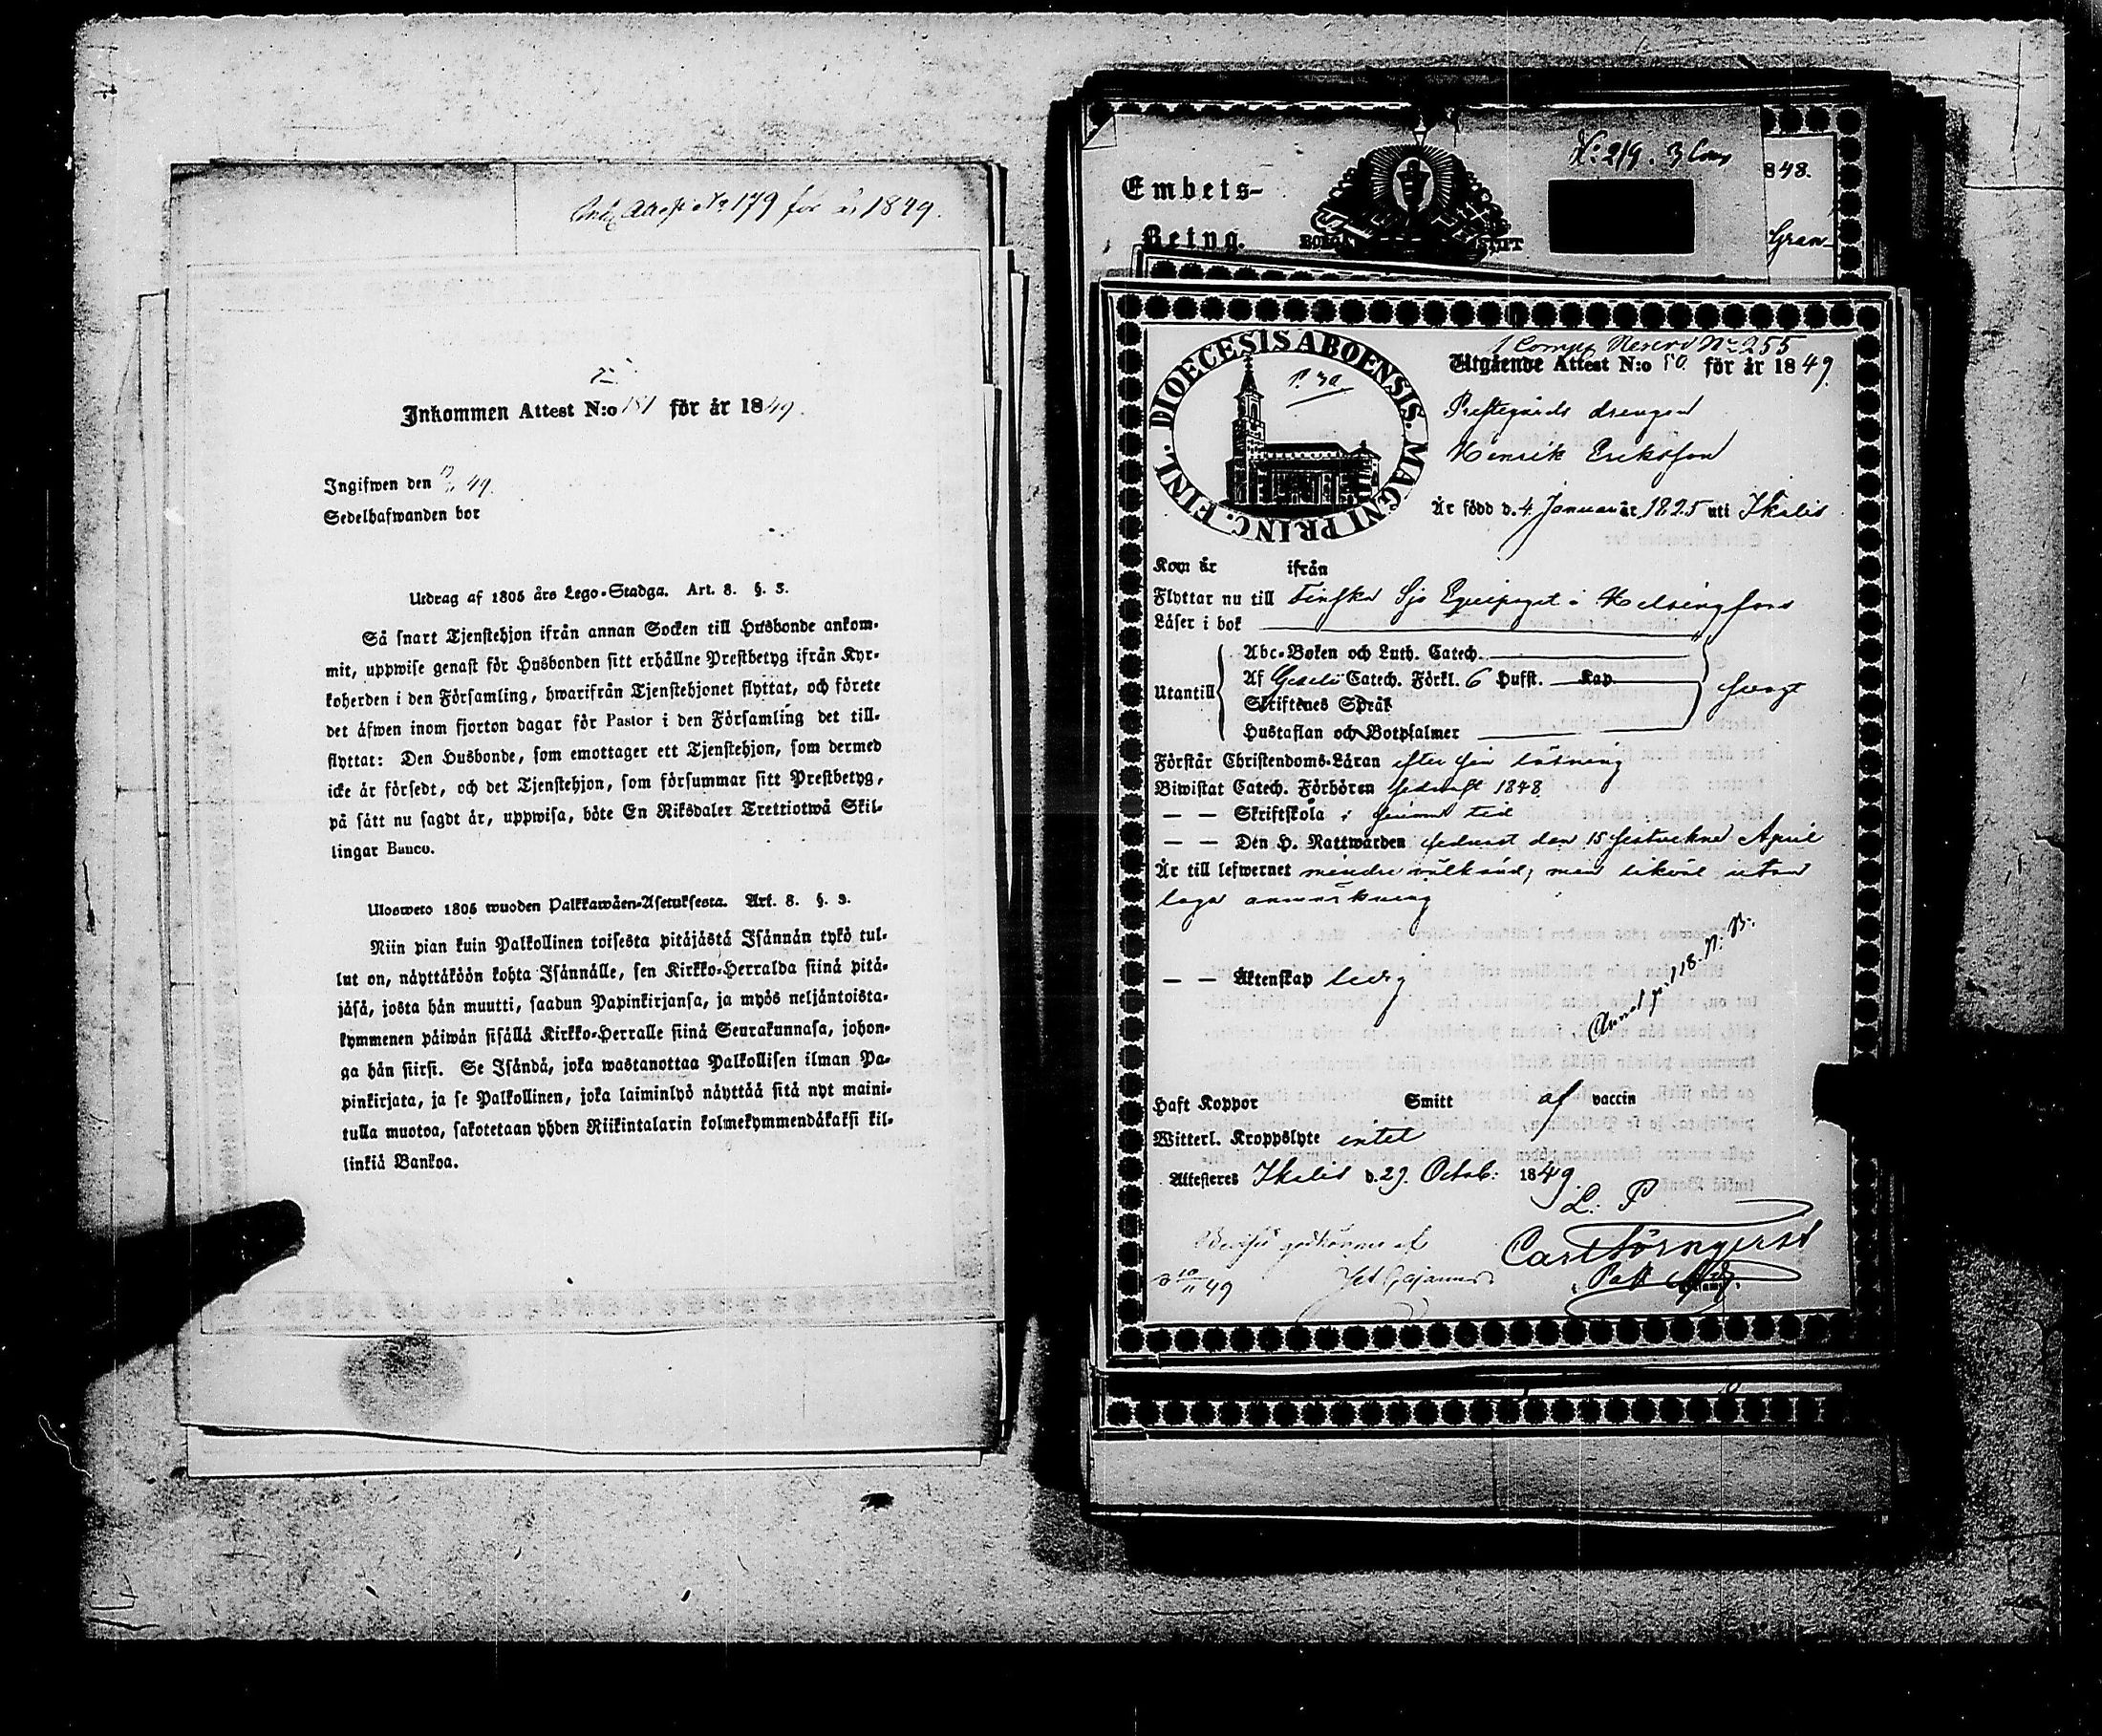 Ink. Attest No 179 för år 1849.
Inkommen Attest N:o 181 för år 1849.
Ingifwen den 49.
Sedelhafwanden bor
Utdrag af 1805 års Lego-Stadga. Art. 8. §. 3.
Så snart Tjenstehjon ifrån annan Socken till Husbonde ankom-
mit, uppwise genast för Husbonden sitt erhållne Prestbetyg ifrån Kyr-
koherden i den Församling, hwarifrån Tjenstehjonet flyttat, och förete
det äfwen inom fjorton dagar för Pastor i den Församling det till-
flyttat: Den Husbonde, som emottager ett Tjenstehjon, som dermed
icke är försedt, och det Tjenstehjon, som försummar sitt Prestbetyg,
på sätt nu sagdt är, uppwisa, böte En Riksdaler Trettiotwå Skil-
lingar Banco.
Ulosweto 1805 wuoden Palkkawäen-Asetuksesta. Art. 8. §. 3.
Niin pian kuin Palkollinen toisesta pitäjästä Isännän tykö tul-
lut on, näyttäköön kohta Isännälle, sen Kirkko-Herralda siinä pitä-
jäsä, josta hän muutti, saadun Papinkirjansa, ja myös neljäntoista-
kymmenen päiwän sisällä Kirkko-Herralle siinä Seurakunnasa, johon-
ga hän siirsi. Se Isändä, joka wastanottaa Palkollisen ilman Pa-
pinkirjata, ja se Palkollinen, joka laiminlyö näyttää sitä nyt maini-
tulla muotoa, sakotetaan yhden Riikintalarin kolmekymmendäkaksi kil-
linkiä Bankoa.
Embets-
Betyg.
N: 219. 3 Com
848.
Gran-
1 Comp Reserv No 255
DIOECESIS ABOENSIS. MAGNI PRINC. FINL.
p. 30
Utgående Attest N:o 50 för år 1849.
Prestegårds drengen
Henrik Eriksson
Är född d. 4 Januari år 1825 uti Ikalis
Kom år ifrån
Flyttar nu till Finska Sjö Equipaget i Helsingfors
Läser i bok
Utantill
Abc-Boken och Luth. Catech.
Af Catech. Förkl. 6 Hufst. Kap.
Skriftenes Språk
Hustaflan och Botpsalmer
svagt
Förstår Christendoms-Läran efter sin läsning
Biwistat Catech. Förhören sednast 1848
— — Skriftskola i sinom tid
— — Den H. Nattwarden sednast den 15 April
Är till lefwernet mindre välkänd; men likväl utan
laga anmärkning
— — Äktenskap ledig
Haft Koppor Smitt af vaccin
Witterl. Kroppslyte intet
Attesteras Ikalis d. 29. Octob: 1849
L. P.
Carl Törnqvist
49